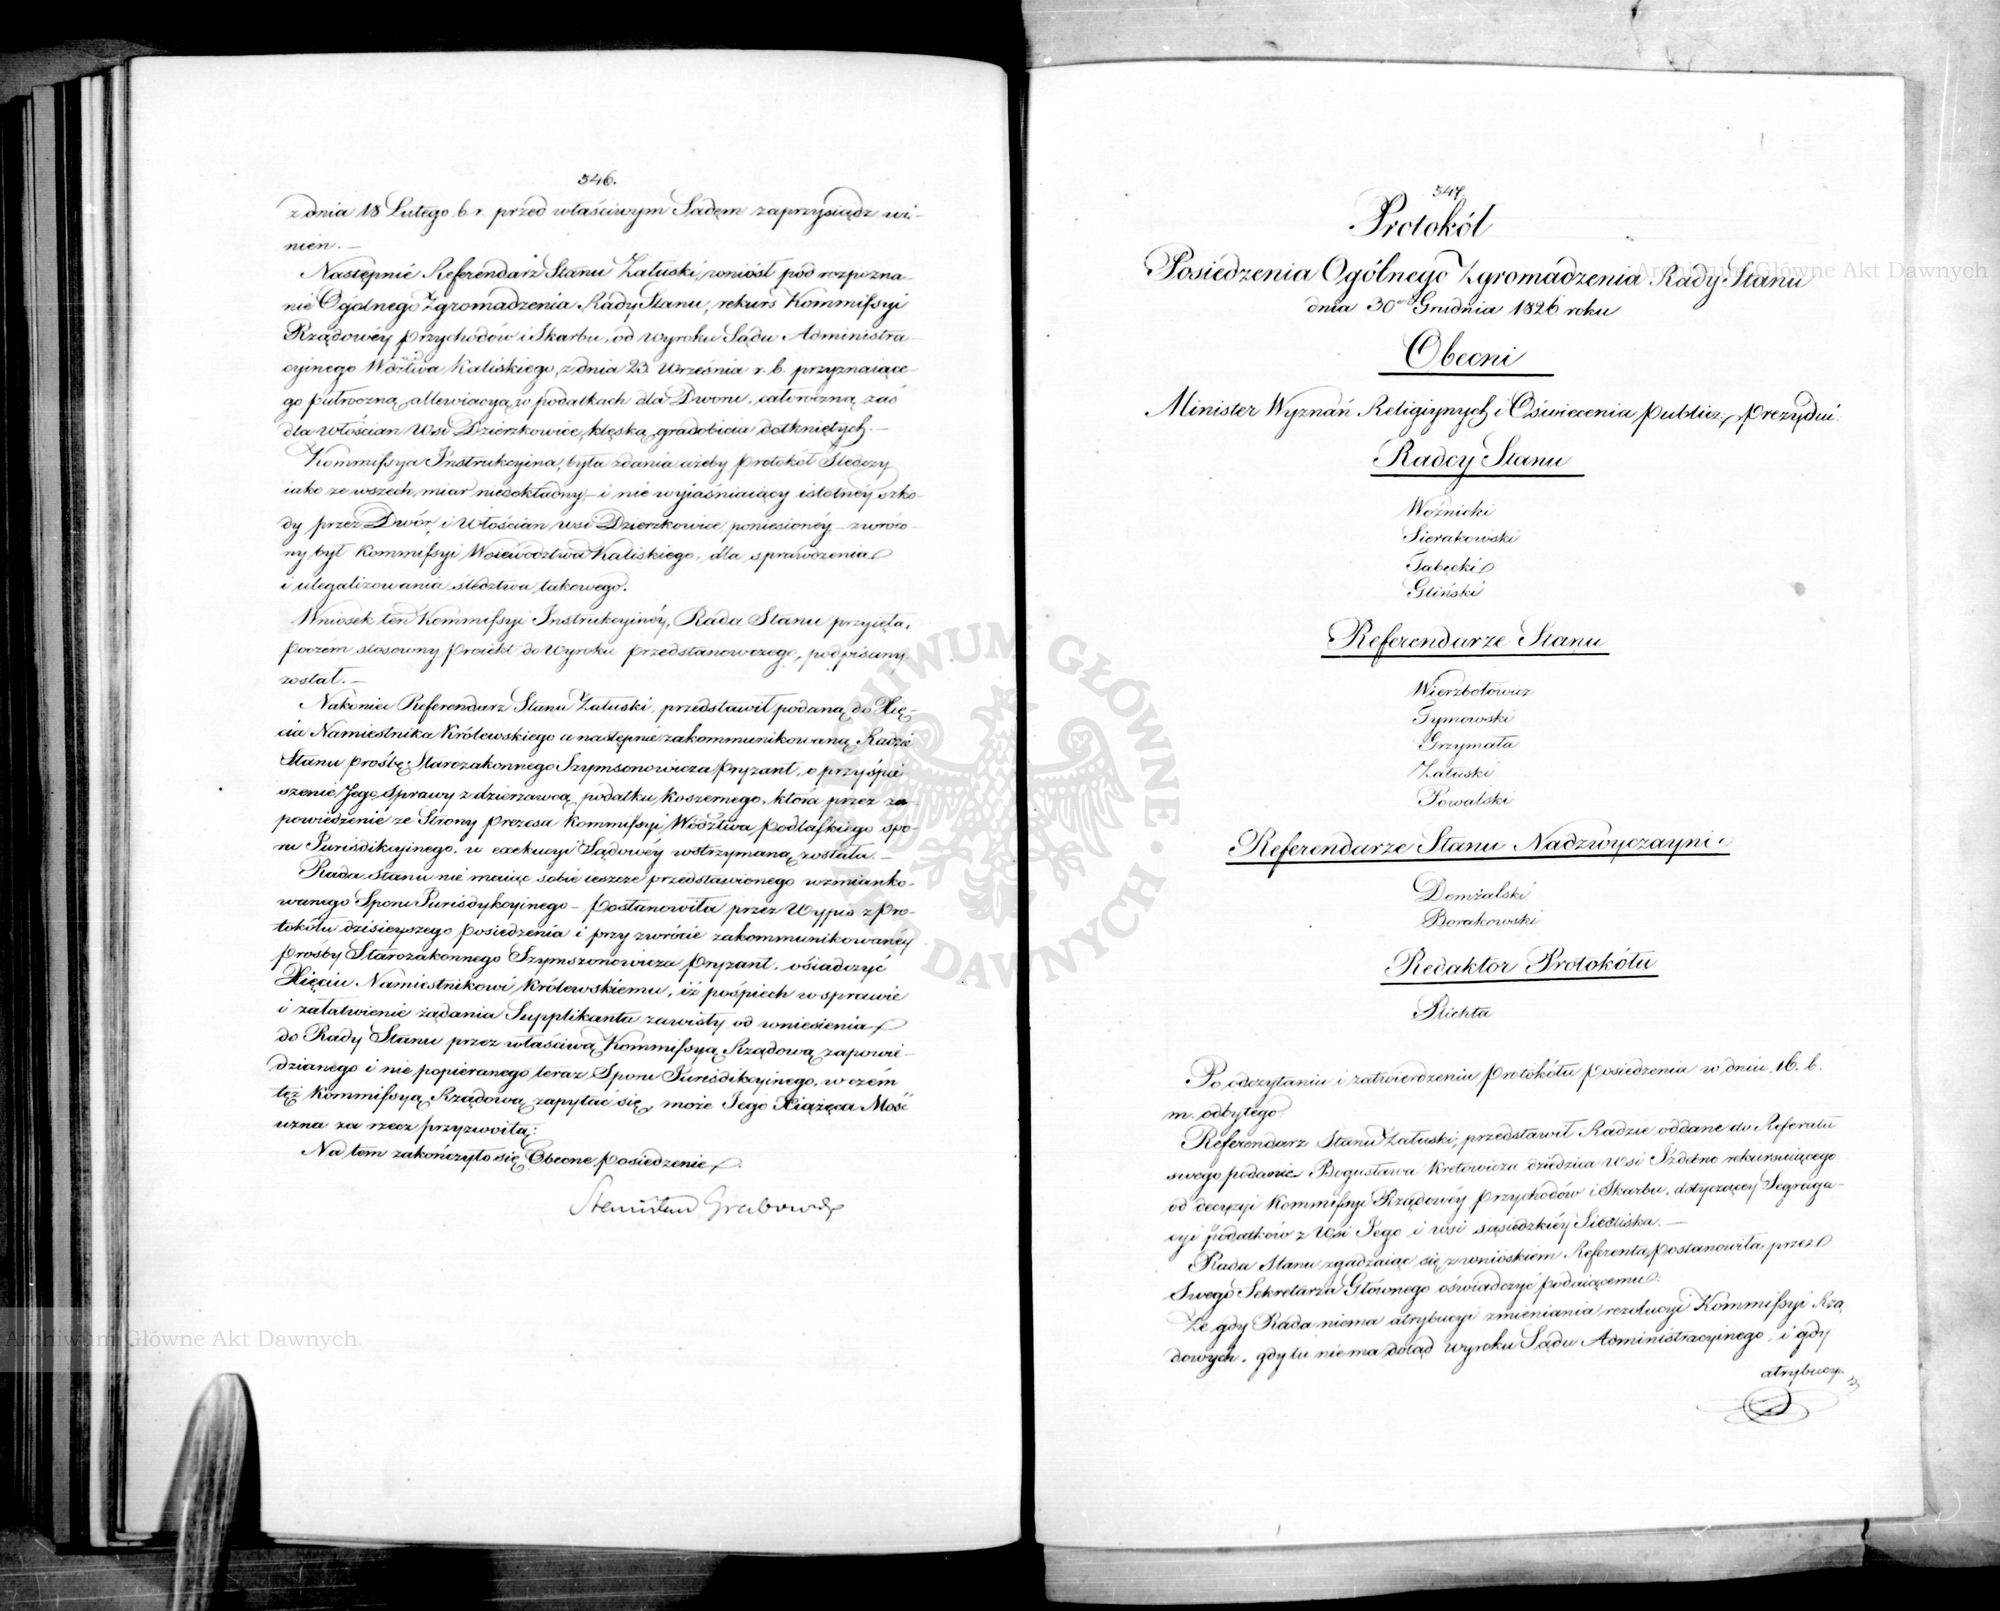 546.
z dnia 18 Lutego b. r. przed właściwym Sądem zaprzysiądz wi-
nien. —
Następnie Referendarz Stanu Załuski, wniósł pod rozpozna-
nie Ogólnego Zgromadzenia Rady Stanu, rekurs Kommissyi
Rządowéy Przychodów i Skarbu, od wyroku Sądu Administra-
cyinego Wództwa Kaliskiego, z dnia 23 Września r. b. przyznaiące-
go półroczną allewiacyą w podatkach dla Dworu, całoroczną zaś
dla Włościan Wsi Dzierzkowice, klęską gradobicia dotkniętych. —
Kommissya Instrukcyina, była zdania ażeby Protokół Śledczy
iako ze wszech miar niedokładny — i nie wyiaśniaiący istotnéy szko-
dy przez Dwór i Włościan wsi Dzierzkowice poniesionéy — zwróco-
ny był Kommissyi Woiewództwa Kaliskiego, dla sprawdzenia
i ulegalizowania śledztwa takowego.
Wniosek ten Kommissyi Instrukcyinéy, Rada Stanu przyięła,
poczem stosowny Proiekt do Wyroku przedstanowczego, podpisany
został. —
Nakoniec Referendarz Stanu Załuski, przedstawił podaną do Xię-
cia Namiestnika Królewskiego a następnie zakommunikowaną Radzie
Stanu prośbę Starozakonnego Szymsonowicza Pryzant, o przyśpie
szenie Jego Sprawy z dzierzawcą podatku Koszernego, która przez za-
powiedzenie ze Strony Prezesa Kommissyi Wództwa Podlaskiego spo-
ru Jurisdikcyinego, w exekucyi Sądowéy wstrzymaną została. —
Rada Stanu nie maiąc sobie ieszcze przedstawionego wzmianko-
wanego Sporu Jurisdykcyinego — postanowiła przez Wypis z Pro-
tokółu dzisieyszego posiedzenia i przy zwrócie zakommunikowanéy
prośby Starozakonnego Szymszonowicza Pryzant, oświadczyć
Xięciu Namiestnikowi Królewskiemu, iż pośpiech w sprawie
i załatwienie żądania Supplikanta zawisły od wniesienia
do Rady Stanu przez właściwą Kommissyą Rządową zapowie-
dzianego i nie popieranego teraz Sporu Jurisdikcyinego, w czém
téż Kommissyą Rządową zapytać się, może Jego Xiążęca Mość
uzna za rzecz przyzwoitą:
Na tem zakończyło się Obecne posiedzenie.
Stanisław Grabowski
547.
Protokół
Posiedzenia Ogólnego Zgromadzenia Rady Stanu
dnia 30go Grudnia 1826 roku
Obecni
Minister Wyznań Religiynych i Oświecenia Publicz: Prezyduią:
Radcy Stanu
Woźnicki
Sierakowski
Tabęcki
Gliński
Referendarze Stanu
Wierzbołowicz
Tymowski
Grzymała
Załuski
Powalski
Referendarze Stanu Nadzwyczayni
Domżalski
Borakowski
Redaktor Protokółu
Plichta
Po odczytaniu i zatwierdzeniu Protokółu posiedzenia w dniu 16. b.
m. odbytego.
Referendarz Stanu Załuski, przedstawił Radzie oddane do Referatu
swego podanie Bogusława Kretowicza dziedzica Wsi Szdebno rekursuiącego
od decyzyi Kommissyi Rządowéy Przychodów i Skarbu, dotyczącéy Segrega-
cyi podatków z Wsi Jego i wsi sąsiedzkiéy Siedliska. —
Rada Stanu zgadzaiąc się z wnioskiem Referenta, postanowiła przez
Swego Sekretarza Głównego oświadczyć podaiącemu:
Że gdy Rada niema atrybucyi zmieniania rezolucyi Kommissyi Rzą-
dowych, gdy tu nie ma dotąd wyroku Sądu Administracyinego, i gdy
atrybucy-
Archiwum Główne Akt Dawnych
Archiwum Główne Akt Dawnych
ARCHIWUM GŁÓWNE AKT DAWNYCH